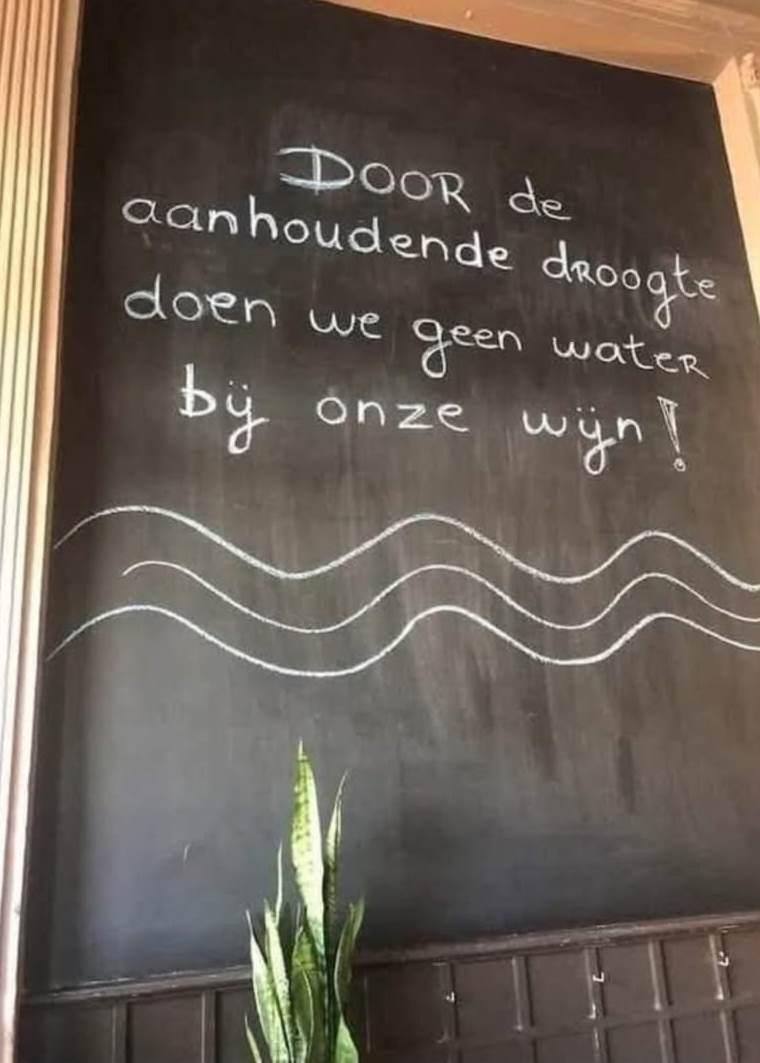 DOOR de
aanhoudende droogte
doen we geen water
bij onze wijn!